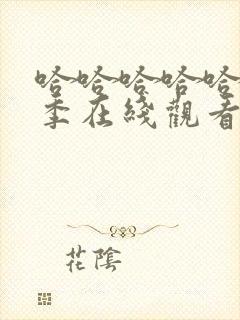 哈哈哈哈哈
季在綫觀看
花陰